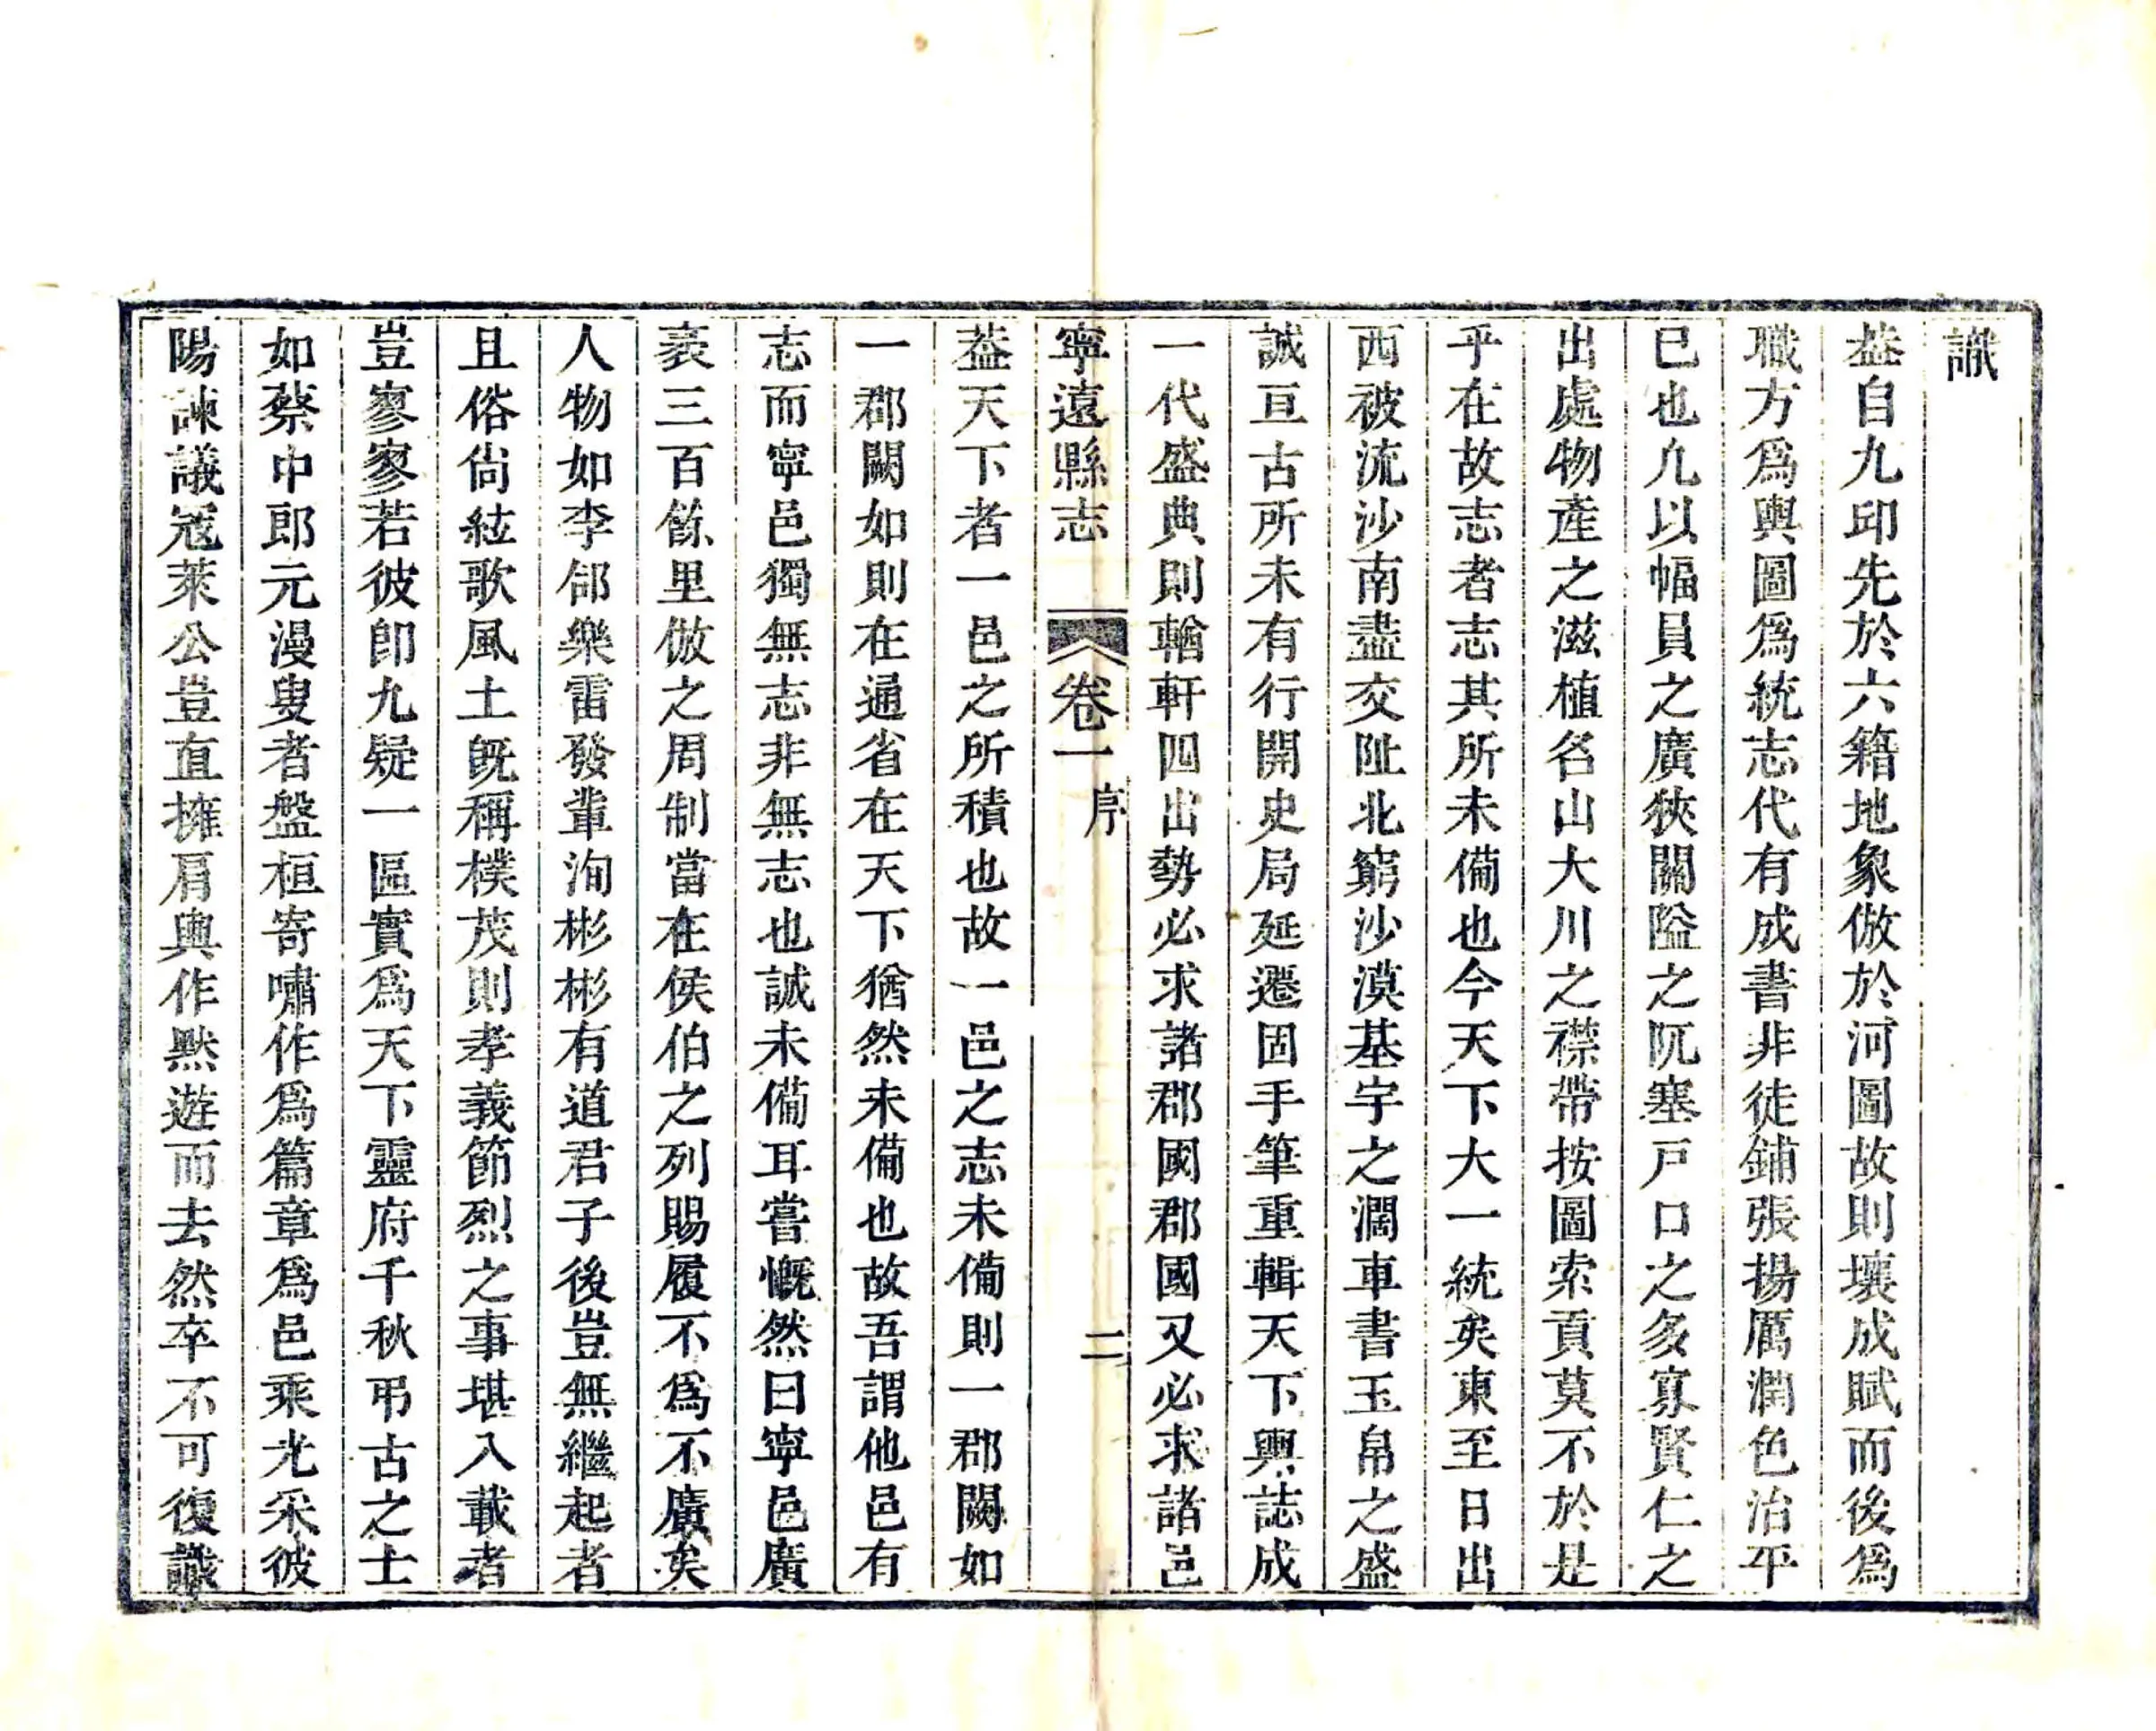 識
蓋自九邱先於六籍地象倣於河圖故則壤成賦而後爲
職方爲輿圖爲統志代有成書非徒鋪張揚厲潤色治平
已也凢以幅員之廣狹關隘之阨塞戸口之多寡賢仁之
出處物產之滋植名山大川之襟帶按圖索貢莫不於是
乎在故志者志其所未備也今天下大一統矣東至日出
西被流沙南盡交阯北窮沙漠基宇之濶車書玉帛之盛
誠亘古所未有行開史局延遷固手筆重輯天下輿誌成
一代盛典則輶軒四出勢必求諸郡國郡國又必求諸邑
寧遠縣志 卷一 序 二
葢天下者一邑之所積也故一邑之志未備則一郡闕如
一郡闕如則在通省在天下猶然未備也故吾謂他邑有
志而寧邑獨無志非無志也誠未備耳嘗慨然曰寧邑廣
袤三百餘里倣之周制當在侯伯之列賜履不爲不廣矣
人物如李郃樂雷發輩洵彬彬有道君子後豈無繼起者
且俗尙絃歌風土旣稱樸茂則孝義節烈之事堪入載者
豈寥寥若彼卽九疑一區實爲天下靈府千秋弔古之士
如蔡中郎元漫叟者盤桓寄嘯作爲篇章爲邑乘光采彼
陽諫議冦萊公豈直擁肩輿作黙遊而去然卒不可復識